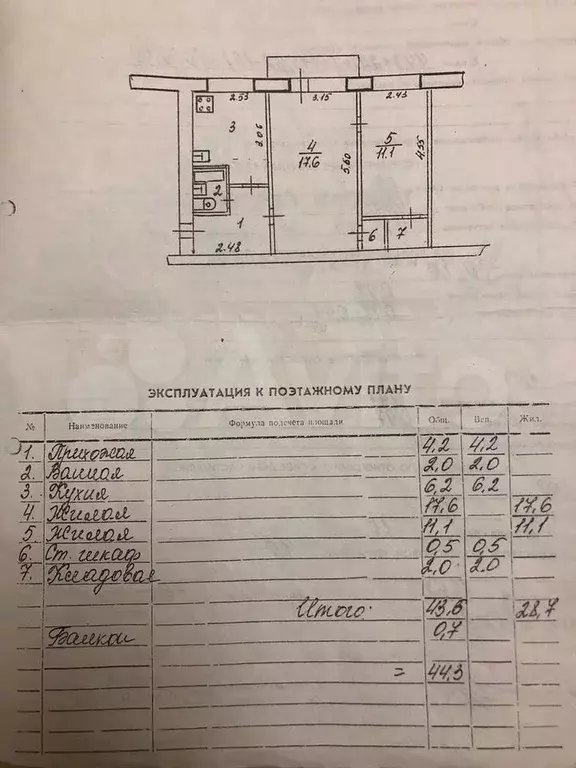 2.53 3.15 2.43
3 3.06 4 17.6 5.60 5 11.1 4.55
2
1 6 7
2.48
ЭКСПЛУАТАЦИЯ К ПОЭТАЖНОМУ ПЛАНУ
№ Наименование Формула подсчета площади Общ. Всп. Жил.
1. Прихожая 4,2 4,2
2. Ванная 2,0 2,0
3. Кухня 6,2 6,2
4 Жилая 17,6 17,6
5 Жилая 11,1 11,1
6. Ст. шкаф 0,5 0,5
7. Кладовая 2,0 2.0
Итого: 43,6 28,7
Балкон 0,7
= 44,3